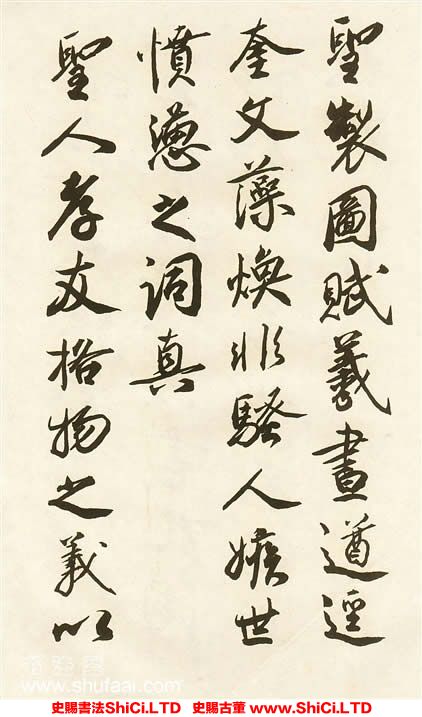 聖製圖賦羲畫遒逕
奎文藻煥非騷人嫉世
憤懣之詞真
聖人孝友格物之義以
www.shufaai.com
史賜書法ShiCi.LTD 史賜古董 www.ShiCi.LTD